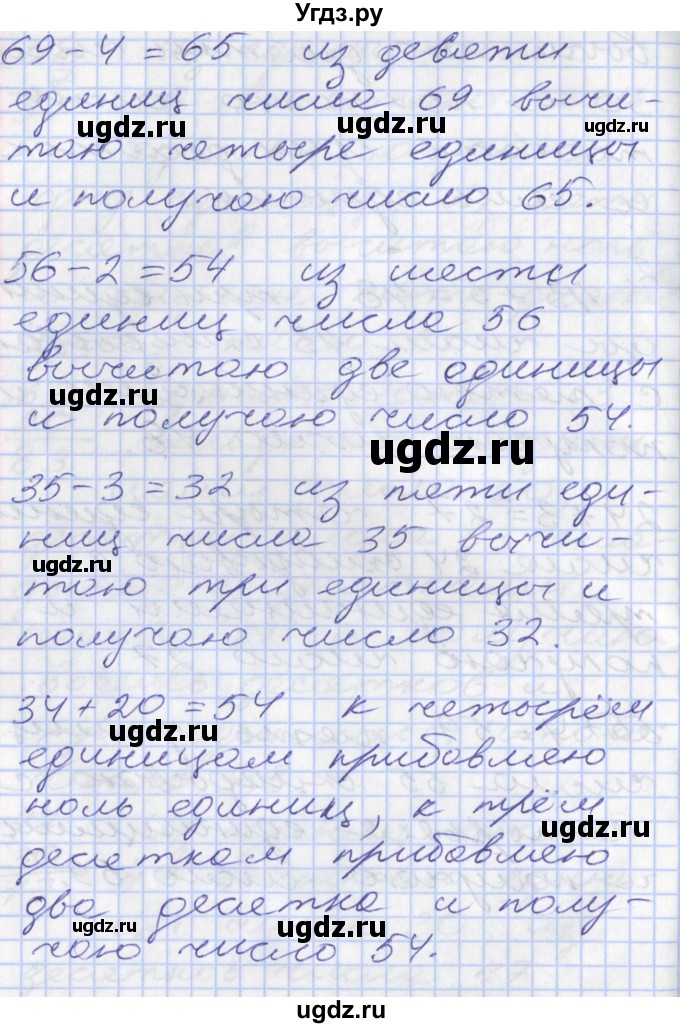 Угдз.ру
69-4=65 из девяти
единиц числа 69 вычи-
ugdz.ru ugdz.ru ugdz.ru
таю четыре единицы
и получаю число 65.
56-2=54 из шести
единиц числа 56
вычитаю две единицы
ugdz.ru
и получаю число 54.
ugdz.ru
35-3=32 из пяти еди-
ниц числа 35 вычи-
ugdz.ru
таю три единицы и
получаю число 32.
34+20=54 к четырём
ugdz.ru
единицам прибавляю
ноль единиц, к трём
ugdz.ru
десяткам прибавляю
два десятка и полу-
чаю число 54.
ugdz.ru
ugdz.ru